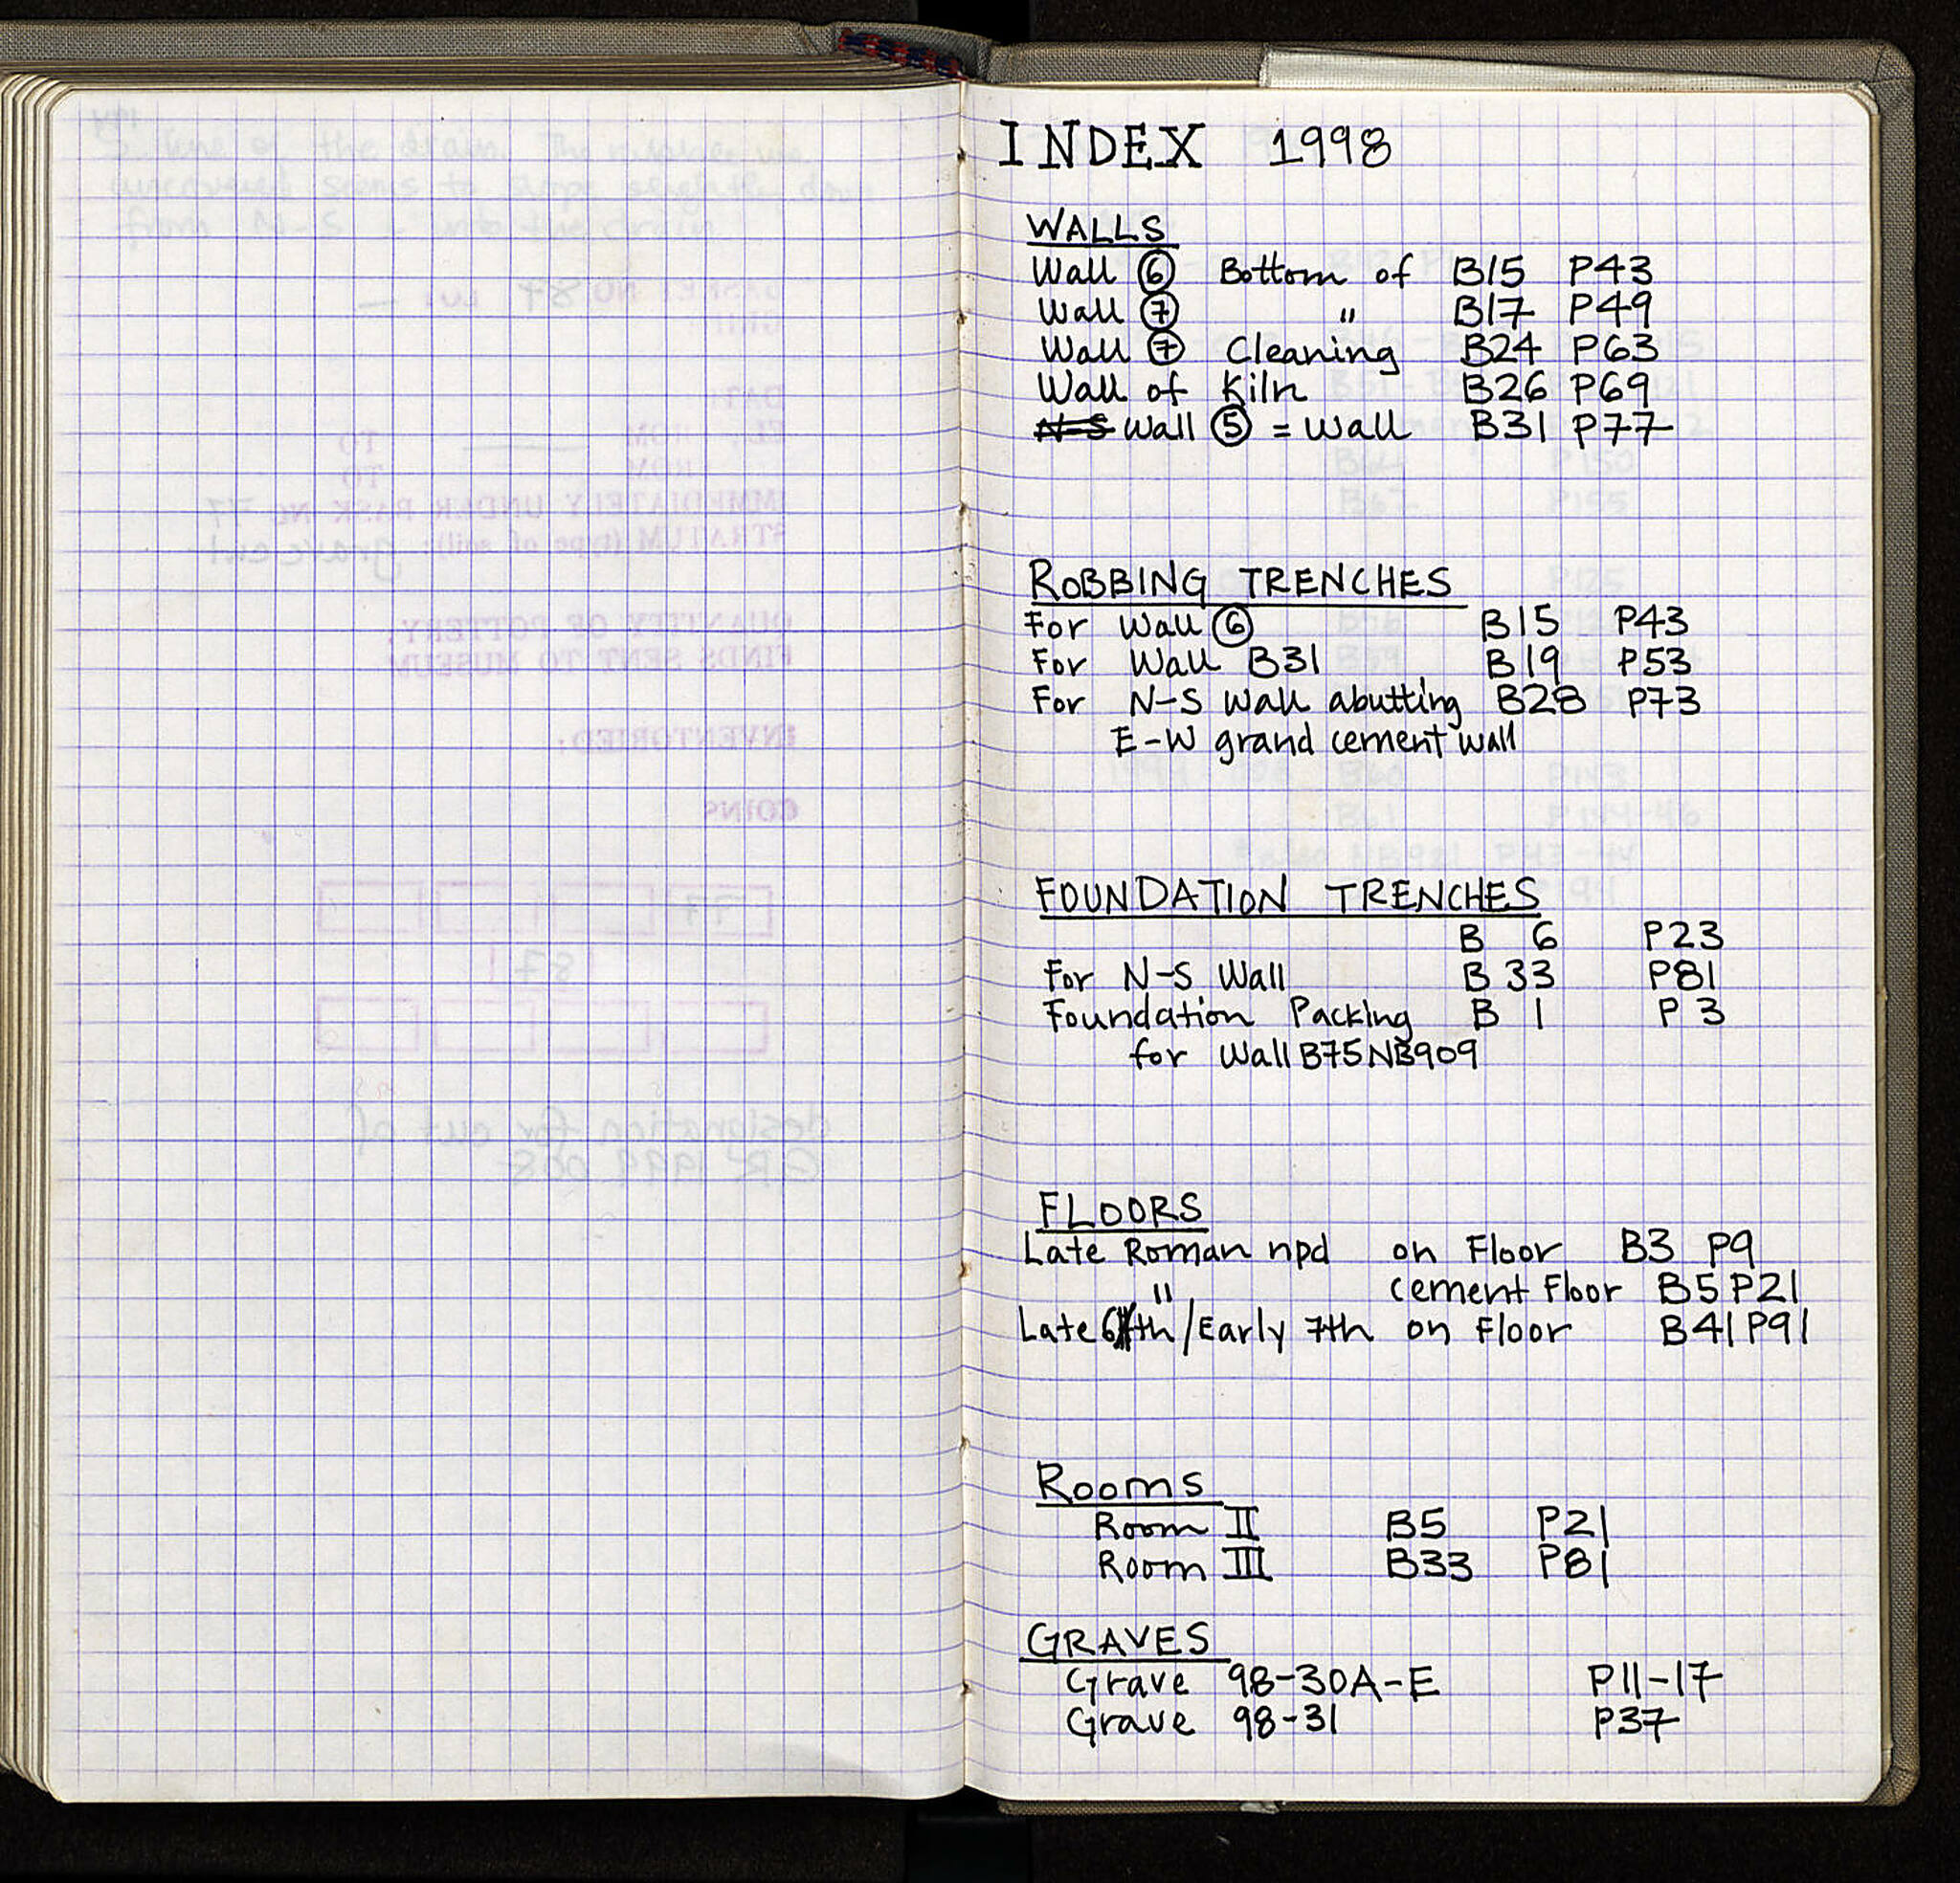 INDEX 1998
WALLS
Wall ⑥ Bottom of B15 P43
Wall ⑦ " B17 P49
Wall ⑦ Cleaning B24 P63
Wall of Kiln B26 P69
N-S Wall ⑤ = Wall B31 P77
ROBBING TRENCHES
For Wall ⑥ B15 P43
For Wall B31 B19 P53
For N-S Wall abutting B28 P73
E-W grand cement wall
FOUNDATION TRENCHES
B 6 P23
For N-S Wall B 33 P81
Foundation Packing B 1 P 3
for Wall B75 NB909
FLOORS
Late Roman npd on Floor B3 P9
" cement Floor B5 P21
Late 6th/Early 7th on Floor B41 P91
Rooms
Room II B5 P21
Room III B33 P81
GRAVES
Grave 98-30A-E P11-17
Grave 98-31 P37